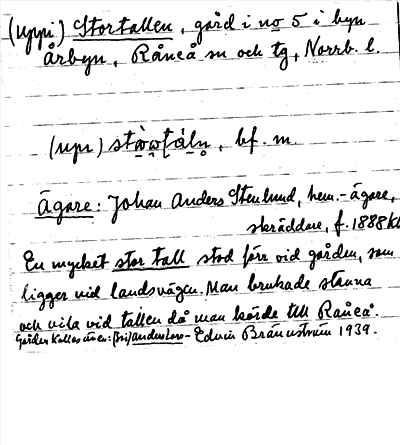 (uppi) Stortallen, gård i no 5 i byn
Årbyn, Råneå sn och tg, Norrb. l.
(upi) bf. m.
Ägare: Johan Anders Stenlund, hem.-ägare,
skräddare, f. 1888
En mycket stor tall stod förr vid gården, som
ligger vid landsvägen. Man brukade stanna
och vila vid tallen då man körde till Råneå.
Gården kallas även: Anderslars - Edvin Brännström 1939.